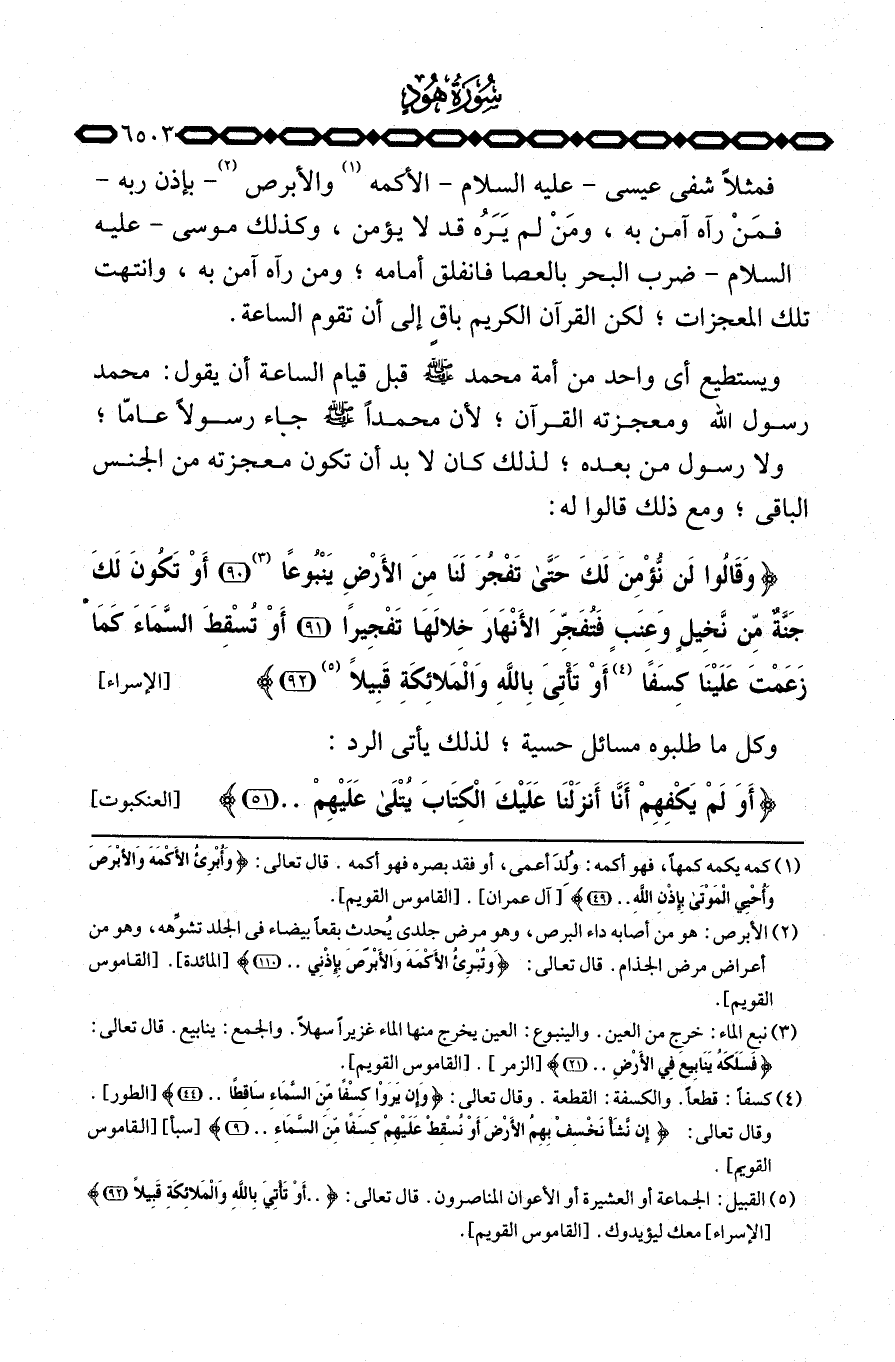 سُورَةُ هُودٍ
٦٥٠٣
فمثلاً شفى عيسى - عليه السلام - الأكمه (١) والأبرص (٢)- بإذن ربه -
فـمَنْ رآه آمـن به ، ومَنْ لـم يَـرَهُ قـد لا يـؤمن ، وكـذلك مـوسى - عليـه
السـلام - ضرب البحر بالعصا فـانفلق أمامه ؛ ومن رآه آمن به ، وانتهت
تلك المعجزات ؛ لكن القرآن الكريم باقٍ إلى أن تقوم الساعة .
ويستطيع أى واحد من أمة محمد ﷺ قبل قيام الساعة أن يقول : محمد
رسـول الله ومعـجـزته القـرآن ؛ لأن محـمـداً ﷺ جـاء رسـولاً عـامّا ؛
ولا رسـول مـن بعـده ؛ لـذلك كـان لا بـد أن تكون مـعـجزته من الجنـس
الباقى ؛ ومع ذلك قالوا له :
﴿ وَقَالُوا لَن نُّؤْمِنَ لَكَ حَتَّىٰ تَفْجُرَ لَنَا مِنَ الأَرْضِ يَنْبُوعًا (٣) (٩٠) أَوْ تَكُونَ لَكَ
جَنَّةٌ مِّن نَّخِيلٍ وَعِنَبٍ فَتُفَجِّرَ الأَنْهَارَ خِلالَهَا تَفْجِيرًا (٩١) أَوْ تُسْقِطَ السَّمَاءَ كَمَا
زَعَمْتَ عَلَيْنَا كِسَفًا (٤) أَوْ تَأْتِيَ بِاللَّهِ وَالْمَلائِكَةِ قَبِيلاً (٥) (٩٢) ﴾ [الإسراء]
وكل ما طلبوه مسائل حسية ؛ لذلك يأتى الرد :
﴿ أَوَ لَمْ يَكْفِهِمْ أَنَّا أَنزَلْنَا عَلَيْكَ الْكِتَابَ يُتْلَىٰ عَلَيْهِمْ .. (٥١) ﴾ [العنكبوت]
(١) كمه يكمه كمهاً، فهو أكمه : وُلدَ أعمى، أو فقد بصره فهو أكمه . قال تعالى : ﴿ وَأُبْرِئُ الأَكْمَهَ وَالأَبْرَصَ
وَأُحْيِي الْمَوْتَىٰ بِإِذْنِ اللَّهِ .. (٤٩) ﴾ [ آل عمران] . [القاموس القويم].
(٢) الأبرص : هو من أصابه داء البرص، وهو مرض جلدى يُحدث بقعاً بيضاء فى الجلد تشوِّهه، وهو من
أعـراض مرض الجذام . قال تعالى : ﴿ وَتُبْرِئُ الأَكْمَهَ وَالأَبْرَصَ بِإِذْنِي .. (١١٠) ﴾ [المائدة]. [القاموس
القويم].
(٣) نبع الماء : خرج من العين. والينبوع : العين يخرج منها الماء غزيراً سهلاً. والجمع : ينابيع . قال تعالى :
﴿ فَسَلَكَهُ يَنَابِيعَ فِي الأَرْضِ .. (٢١) ﴾ [الزمر ] . [القاموس القويم].
(٤) كسفاً : قطعاً. والكسفة : القطعة . وقال تعالى : ﴿ وَإِن يَرَوْا كِسْفًا مِّنَ السَّمَاءِ سَاقِطًا .. (٤٤) ﴾ [الطور] .
وقال تعالى : ﴿ إِن نَّشَأْ نَخْسِفْ بِهِمُ الأَرْضَ أَوْ نُسْقِطْ عَلَيْهِمْ كِسَفًا مِّنَ السَّمَاءِ .. (٩) ﴾ [سبأ] [القاموس
القويم] .
(٥) القبيل : الجماعة أو العشيرة أو الأعوان المناصرون . قال تعالى : ﴿ .. أَوْ تَأْتِيَ بِاللَّهِ وَالْمَلائِكَةِ قَبِيلاً (٩٢) ﴾
[الإسراء] معك ليؤيدوك . [القاموس القويم].